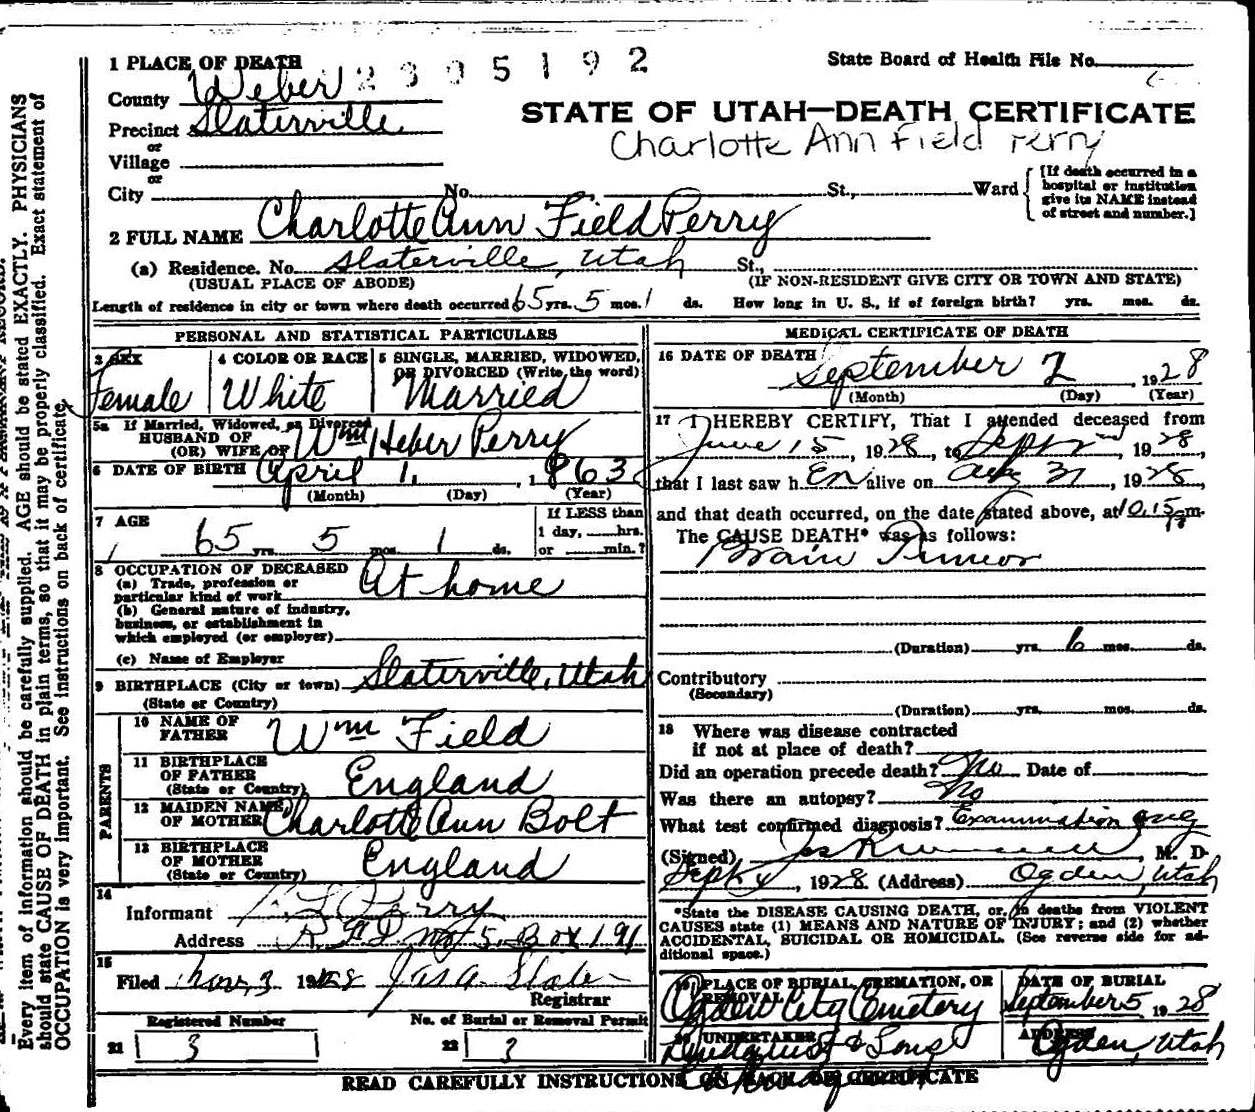 1 PLACE OF DEATH
2305192
State Board of Health File No.
County Weber
STATE OF UTAH—DEATH CERTIFICATE
Precinct Slaterville
Charlotte Ann Field Perry
or
Village
or
City No. St., Ward
[If death occurred in a
hospital or institution
give its NAME instead
of street and number.]
2 FULL NAME Charlotte Ann Field Perry
(a) Residence. No. Slaterville, Utah St.,
(USUAL PLACE OF ABODE) (IF NON-RESIDENT GIVE CITY OR TOWN AND STATE)
Length of residence in city or town where death occurred 65 yrs. 5 mos. 1 ds. How long in U. S., if of foreign birth? yrs. mos. ds.
PERSONAL AND STATISTICAL PARTICULARS
3 SEX
Female
4 COLOR OR RACE
White
5 SINGLE, MARRIED, WIDOWED,
OR DIVORCED (Write the word)
Married
5a If Married, Widowed, or Divorced
HUSBAND OF
(OR) WIFE OF Wm Heber Perry
6 DATE OF BIRTH April 1, 1863
(Month) (Day) (Year)
7 AGE
65 yrs. 5 mos. 1 ds.
If LESS than
1 day, hrs.
or min.?
8 OCCUPATION OF DECEASED
(a) Trade, profession or
particular kind of work At home
(b) General nature of industry,
business, or establishment in
which employed (or employer)
(c) Name of Employer
9 BIRTHPLACE (City or town) Slaterville, Utah
(State or Country)
PARENTS
10 NAME OF
FATHER Wm Field
11 BIRTHPLACE
OF FATHER
(State or Country) England
12 MAIDEN NAME
OF MOTHER Charlotte Ann Bolt
13 BIRTHPLACE
OF MOTHER
(State or Country) England
14
Informant Perry
Address R.F.D. No 5. Box 191
15
Filed Nov. 3 1928 Jas A. Slater
Registrar
Registered Number
21 3
No. of Burial or Removal Permit
22 3
MEDICAL CERTIFICATE OF DEATH
16 DATE OF DEATH
September 2, 1928
(Month) (Day) (Year)
17 I HEREBY CERTIFY, That I attended deceased from
June 15, 1928, to Sept 2nd, 1928,
that I last saw h er alive on Aug 31, 1928,
and that death occurred, on the date stated above, at 10.15 m.
The CAUSE DEATH* was as follows:
Brain Tumor
(Duration) yrs. 6 mos. ds.
Contributory
(Secondary)
(Duration) yrs. mos. ds.
18 Where was disease contracted
if not at place of death?
Did an operation precede death? No Date of
Was there an autopsy? No
What test confirmed diagnosis? Examination only
(Signed) , M. D.
Sept 4, 1928 (Address) Ogden, Utah
*State the DISEASE CAUSING DEATH, or, in deaths from VIOLENT
CAUSES state (1) MEANS AND NATURE OF INJURY; and (2) whether
ACCIDENTAL, SUICIDAL OR HOMICIDAL. (See reverse side for ad-
ditional space.)
19 PLACE OF BURIAL, CREMATION, OR
REMOVAL
Ogden City Cemetery
DATE OF BURIAL
September 5, 1928
20 UNDERTAKER
Lindquist & Sons
ADDRESS
Ogden, Utah
READ CAREFULLY INSTRUCTIONS ON BACK OF CERTIFICATE
Every item of information should be carefully supplied. AGE should be stated EXACTLY. PHYSICIANS
should state CAUSE OF DEATH in plain terms, so that it may be properly classified. Exact statement of
OCCUPATION is very important. See instructions on back of certificate.